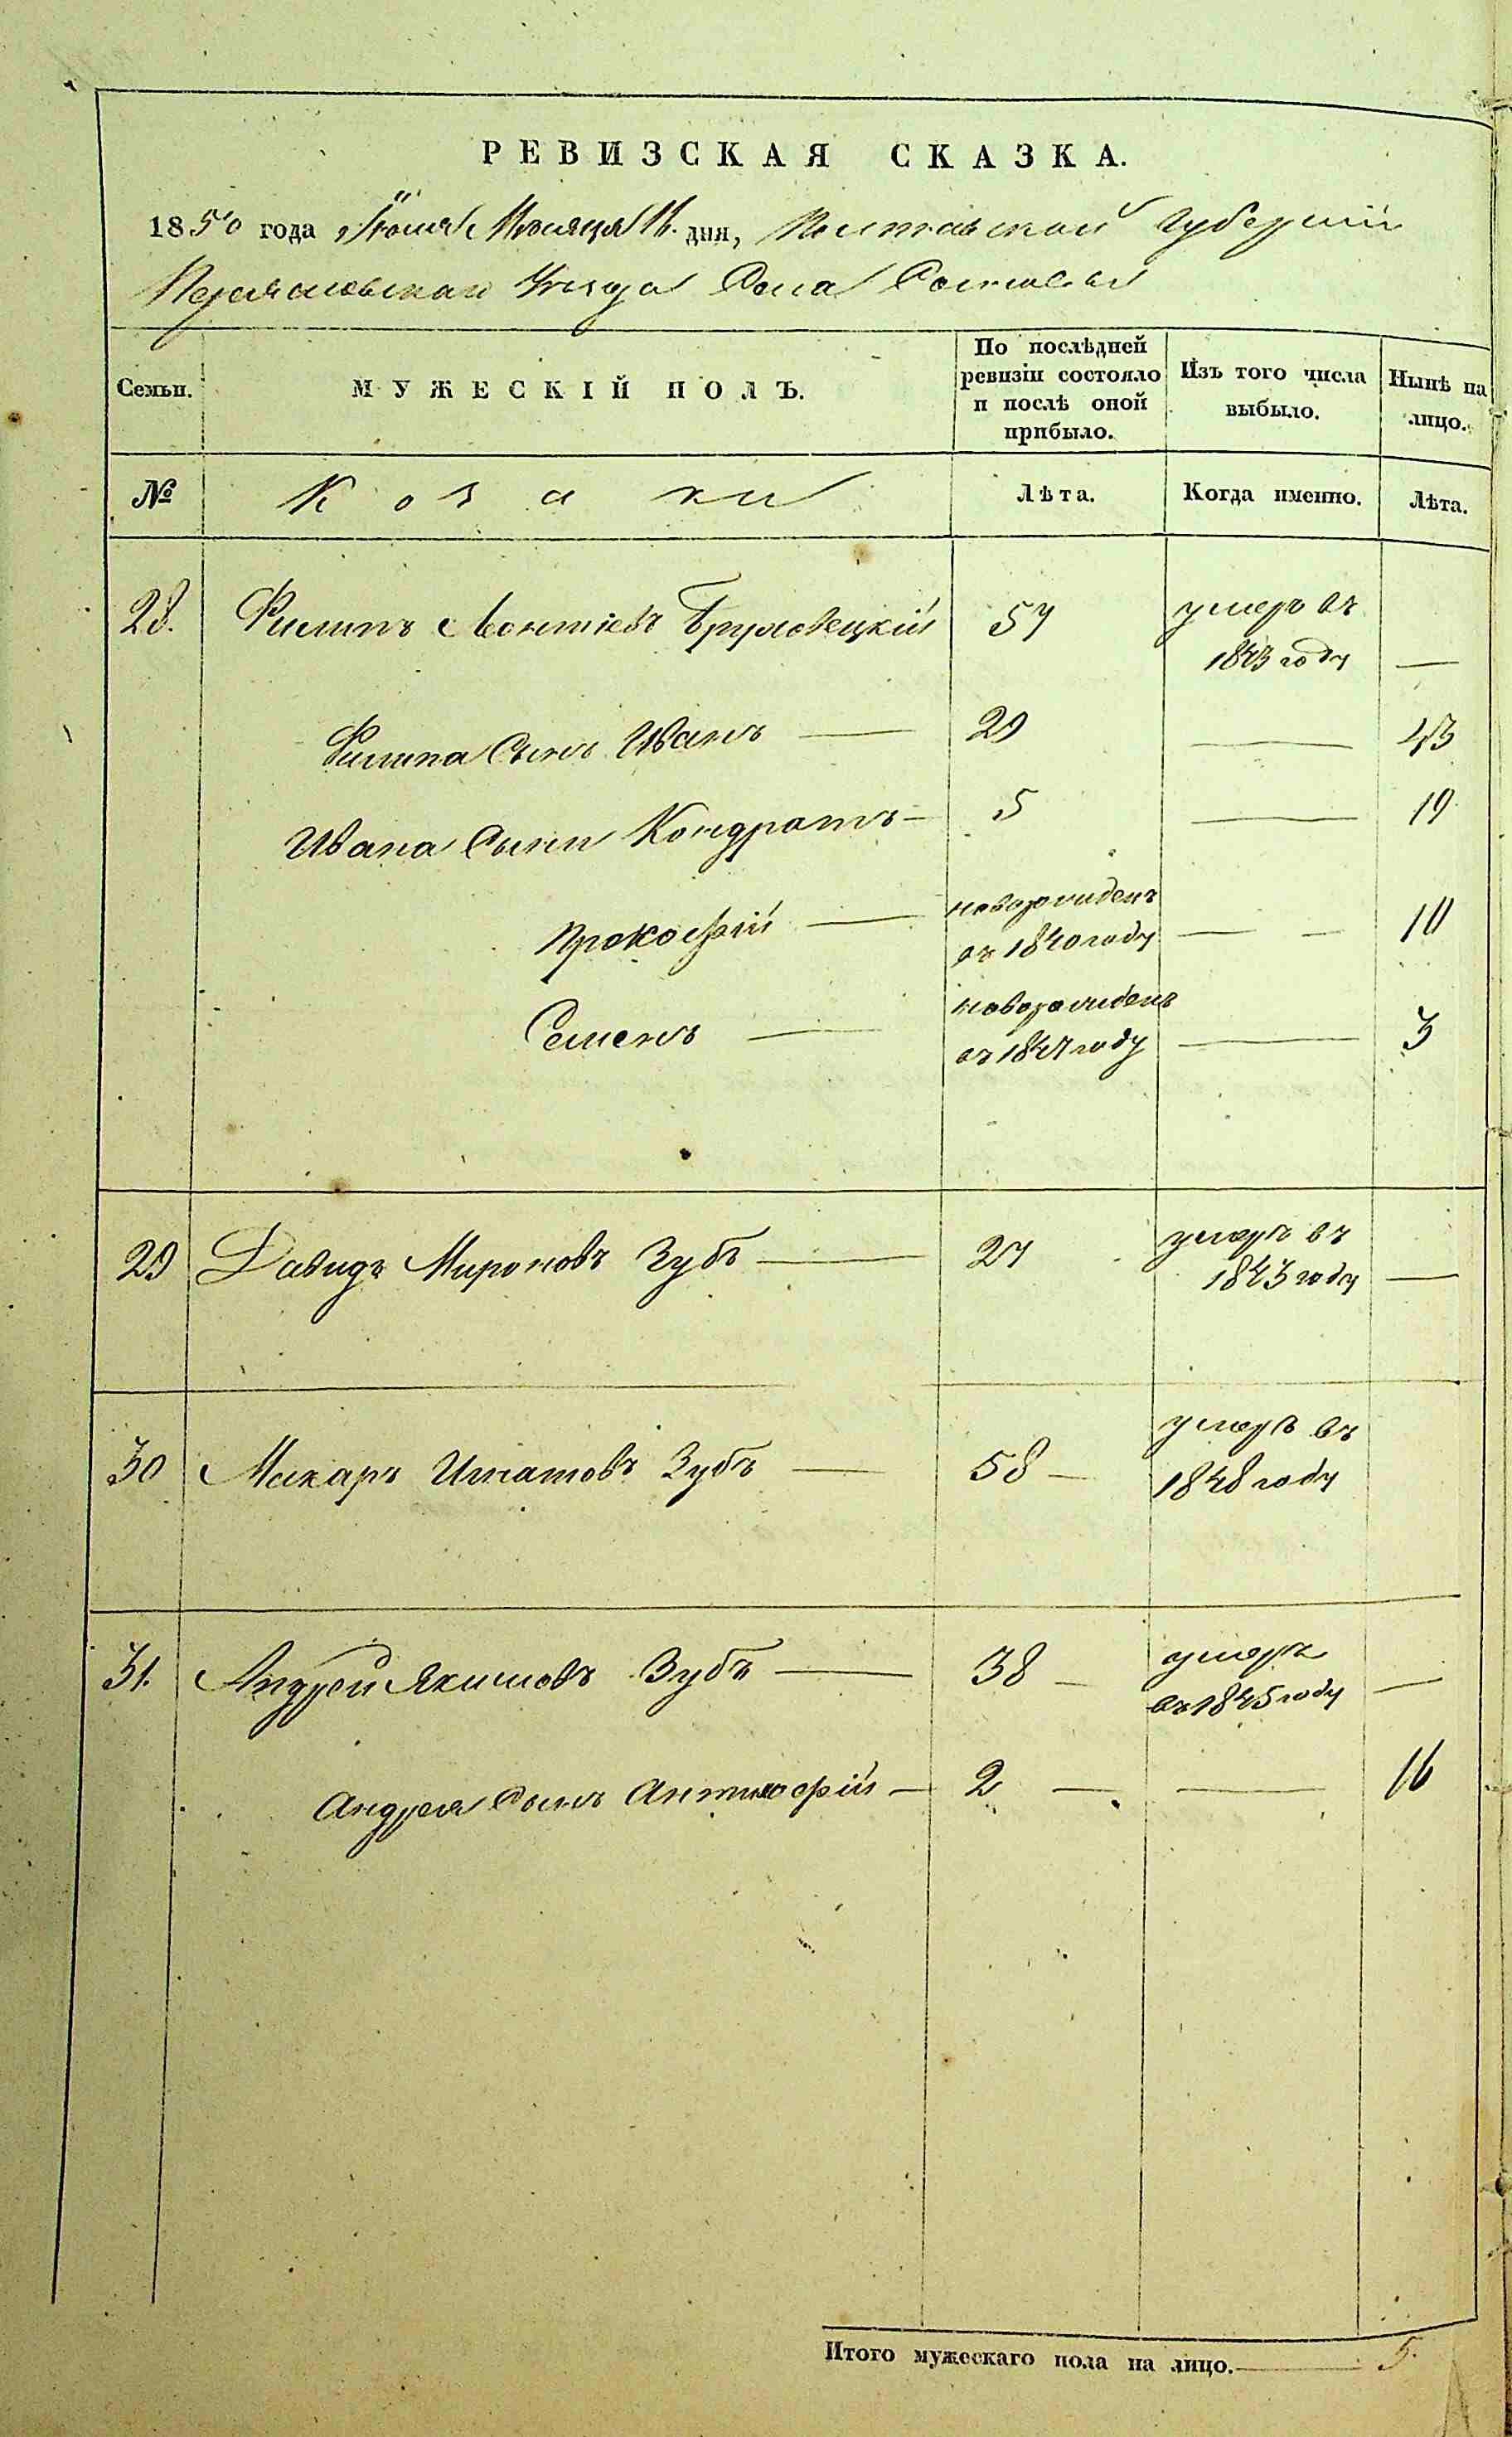 РЕВИЗСКАЯ СКАЗКА.
1850 года Іюня Мѣсяца 16. дня, Полтавской Губерніи
Переяславскаго Уѣзда Села
Семьи.
МУЖЕСКІЙ ПОЛЪ.
По послѣдней ревизіи состояло и послѣ оной прибыло.
Изъ того числа выбыло.
Нынѣ на лицо.
№
Козаки
Лѣта.
Когда именно.
Лѣта.
28. Филипъ Леонтіевъ 57 умеръ въ
1843 году —
Филипа Сынъ Иванъ — 29 — 43
Ивана Сыны Кондратъ — 5 — 19
Прокофій — новорожденъ
въ 1840 году — — 10
Семенъ — новорожденъ
въ 1847 году — 3
29 Давидъ Мироновъ Зубъ — 27 умеръ въ
1843 году —
30 Макаръ Игнатовъ Зубъ — 58 — умеръ въ
1848 году
31. Андрей Якимовъ Зубъ — 38 — умеръ
въ 1845 году —
Андрея Сынъ Антимофій — 2 — — 16
Итого мужескаго пола на лицо. — 5.